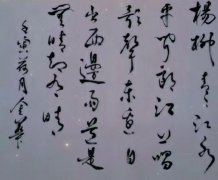 楊柳青々江水
平聞郎江上唱
歌聲東邊日
出西邊雨道是
無晴却有晴
壬寅月金